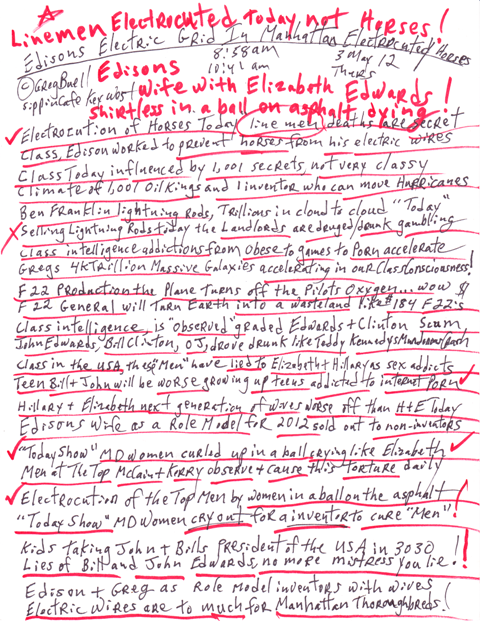 Linemen Electrocuted Today not Horses!
Edisons Electric Grid In Manhattan Electrocuted Horses
8:58am 3 May 12
©GregBuell Edisons 10:41 am Thurs
sippinCafe Key West Wife with Elizabeth Edwards!
shirtless in a ball on asphalt dying!
Electrocution of Horses Today line men deaths are secret
Class, Edison worked to prevent horses from his electric wires
Class Today influenced by 1,001 secrets, not very classy
Climate of 1,001 Oil Kings and 1 inventor who can move Hurricanes
Ben Franklin lightning rods, Trillions in cloud to cloud "Today"
Selling Lightning Rods today the Landlords are drunk gambling
Class intelligence addictions from obese to games to Porn accelerate
Gregs 4kTrillion Massive Galaxies accelerating in our Class Consciousness!
F22 Production the Plane turns off the Pilots Oxygen... wow $
F22 General will Tarn Earth into a wasteland like #184 F22's
Class intelligence, is "observed" graded Edwards + Clinton Scum,
John Edwards, Bill Clinton, OJ, drove drunk like Teddy Kennedys
Class in the USA, these "Men" have lied to Elizabeth + Hillary as sex addicts
Teen Bill + John will be worse growing up teens addicted to internet Porn
Hillary + Elizabeth next generation of wives worse off than H+E Today
Edisons Wife as a Role Model for 2012 sold out to non-inventors
"Today Show" MD Women curled up in a ball crying like Elizabeth
Men at The Top McCain + Kerry observe + cause this torture daily
Electrocution of the Top Men by women in a ball on the asphalt
"Today Show" MD Women cry out for a inventor to cure "Men"!
Kids taking John + Bills President of the USA in 3030!
Lies of Bill and John Edwards, no more mistress you lie!
Edison + Greg as Role Model inventors with wives
Electric Wires are to much for Manhattan Thoroughbreds!